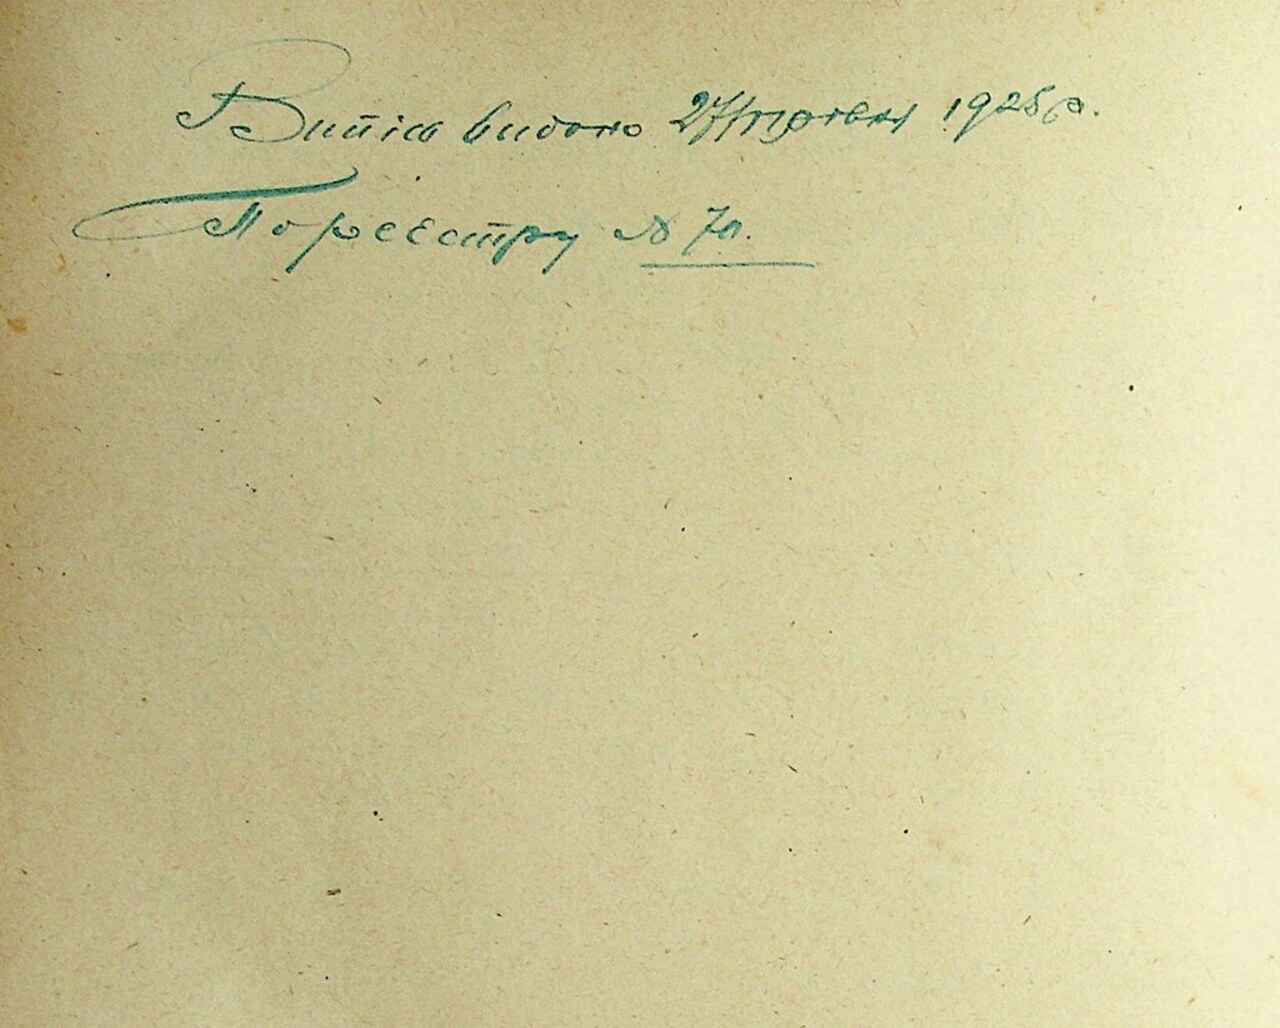 Витяг видано 27/травня 1925 р.
По реєстру № 70.